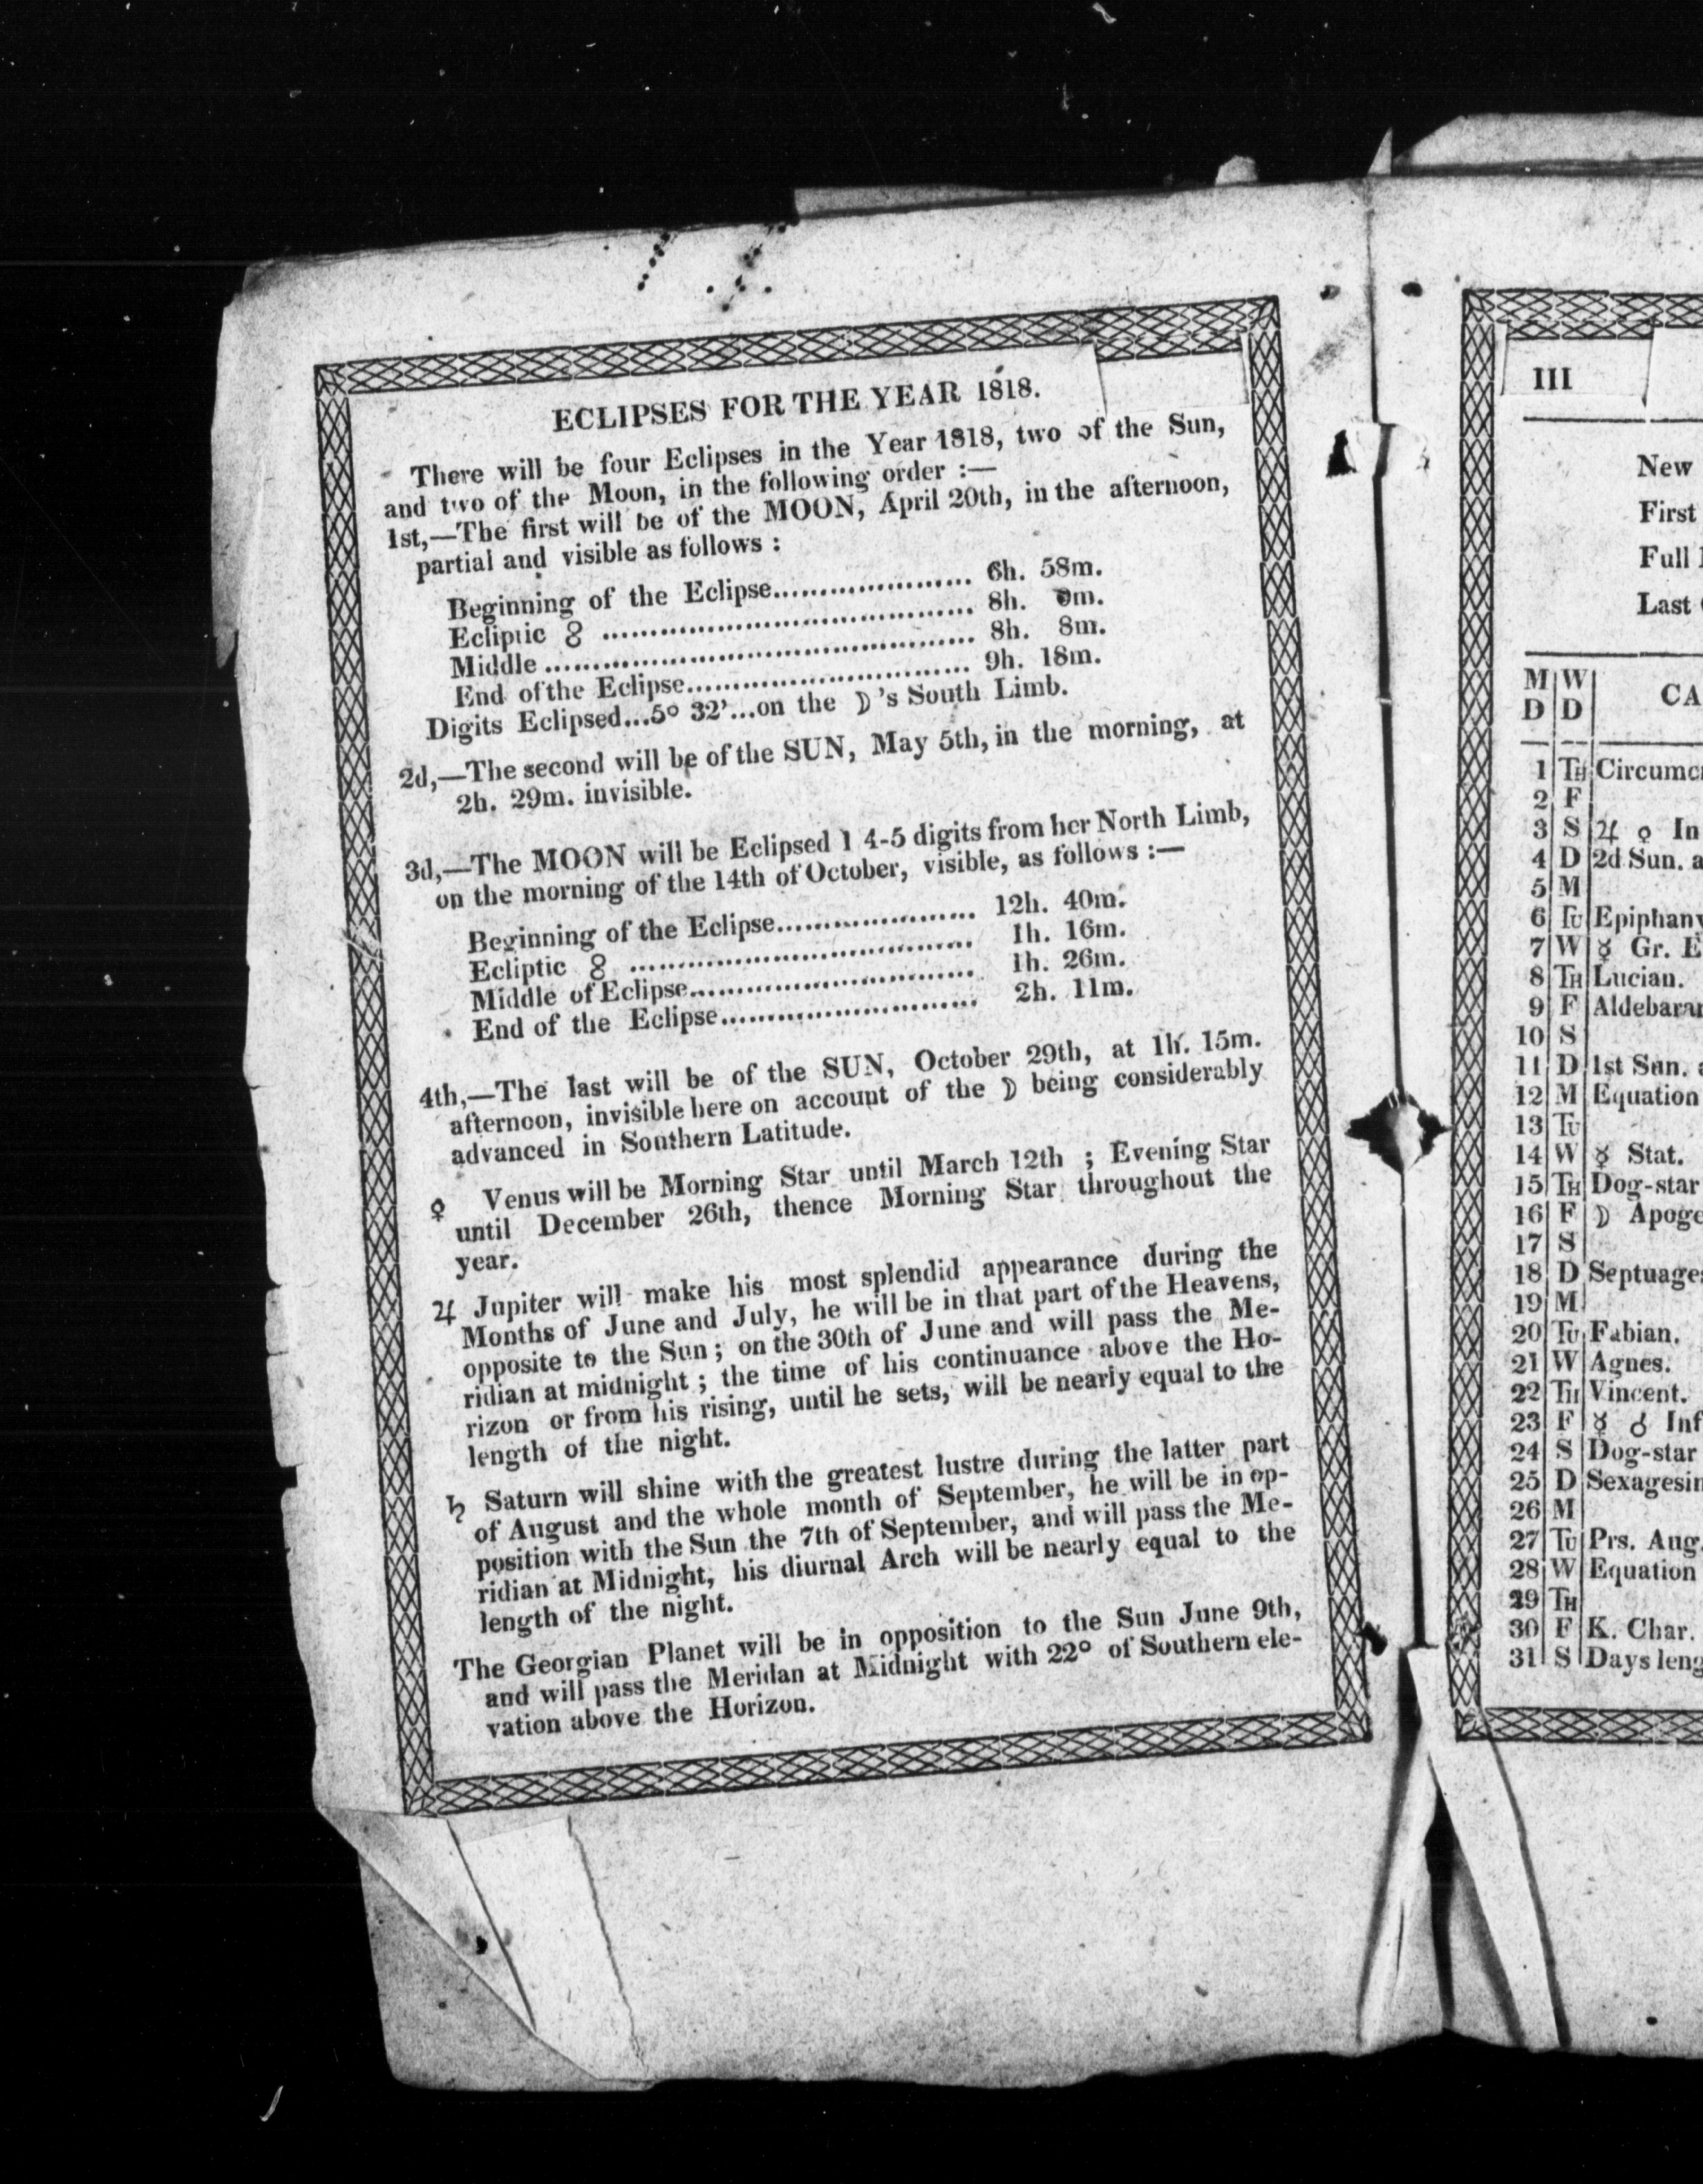 ECLIPSES FOR THE YEAR 1818.
There will be four Eclipses in the Year 1818, two of the Sun,
and two of the Moon, in the following order :—
1st,—The first will be of the MOON, April 20th, in the afternoon,
partial and visible as follows :
Beginning of the Eclipse..................... 6h. 58m.
Ecliptic ☍ ....................................... 8h. 0m.
Middle ............................................. 8h. 8m.
End of the Eclipse.............................. 9h. 18m.
Digits Eclipsed...5° 32'...on the ☽'s South Limb.
2d,—The second will be of the SUN, May 5th, in the morning, at
2h. 29m. invisible.
3d,—The MOON will be Eclipsed 1 4-5 digits from her North Limb,
on the morning of the 14th of October, visible, as follows :—
Beginning of the Eclipse..................... 12h. 40m.
Ecliptic ☍ .................................... 1h. 16m.
Middle of Eclipse.............................. 1h. 26m.
End of the Eclipse........................... 2h. 11m.
4th,—The last will be of the SUN, October 29th, at 1h. 15m.
afternoon, invisible here on account of the ☽ being considerably
advanced in Southern Latitude.
♀ Venus will be Morning Star until March 12th ; Evening Star
until December 26th, thence Morning Star throughout the
year.
♃ Jupiter will make his most splendid appearance during the
Months of June and July, he will be in that part of the Heavens,
opposite to the Sun ; on the 30th of June and will pass the Me-
ridian at midnight ; the time of his continuance above the Ho-
rizon or from his rising, until he sets, will be nearly equal to the
length of the night.
♄ Saturn will shine with the greatest lustre during the latter part
of August and the whole month of September, he will be in op-
position with the Sun the 7th of September, and will pass the Me-
ridian at Midnight, his diurnal Arch will be nearly equal to the
length of the night.
The Georgian Planet will be in opposition to the Sun June 9th,
and will pass the Meridan at Midnight with 22° of Southern ele-
vation above the Horizon.
III
New
First
Full
Last
M W
D D CA
1 TH Circumc
2 F
3 S ♃ ♀ In
4 D 2d Sun. a
5 M
6 TU Epiphany
7 W ☿ Gr. E
8 TH Lucian.
9 F Aldebaran
10 S
11 D 1st Sun. a
12 M Equation
13 TU
14 W ☿ Stat.
15 TH Dog-star
16 F ☽ Apoge
17 S
18 D Septuages
19 M
20 TU Fabian.
21 W Agnes.
22 TH Vincent.
23 F ☿ ☌ Inf
24 S Dog-star
25 D Sexagesim
26 M
27 TU Prs. Aug.
28 W Equation
29 TH
30 F K. Char.
31 S Days leng